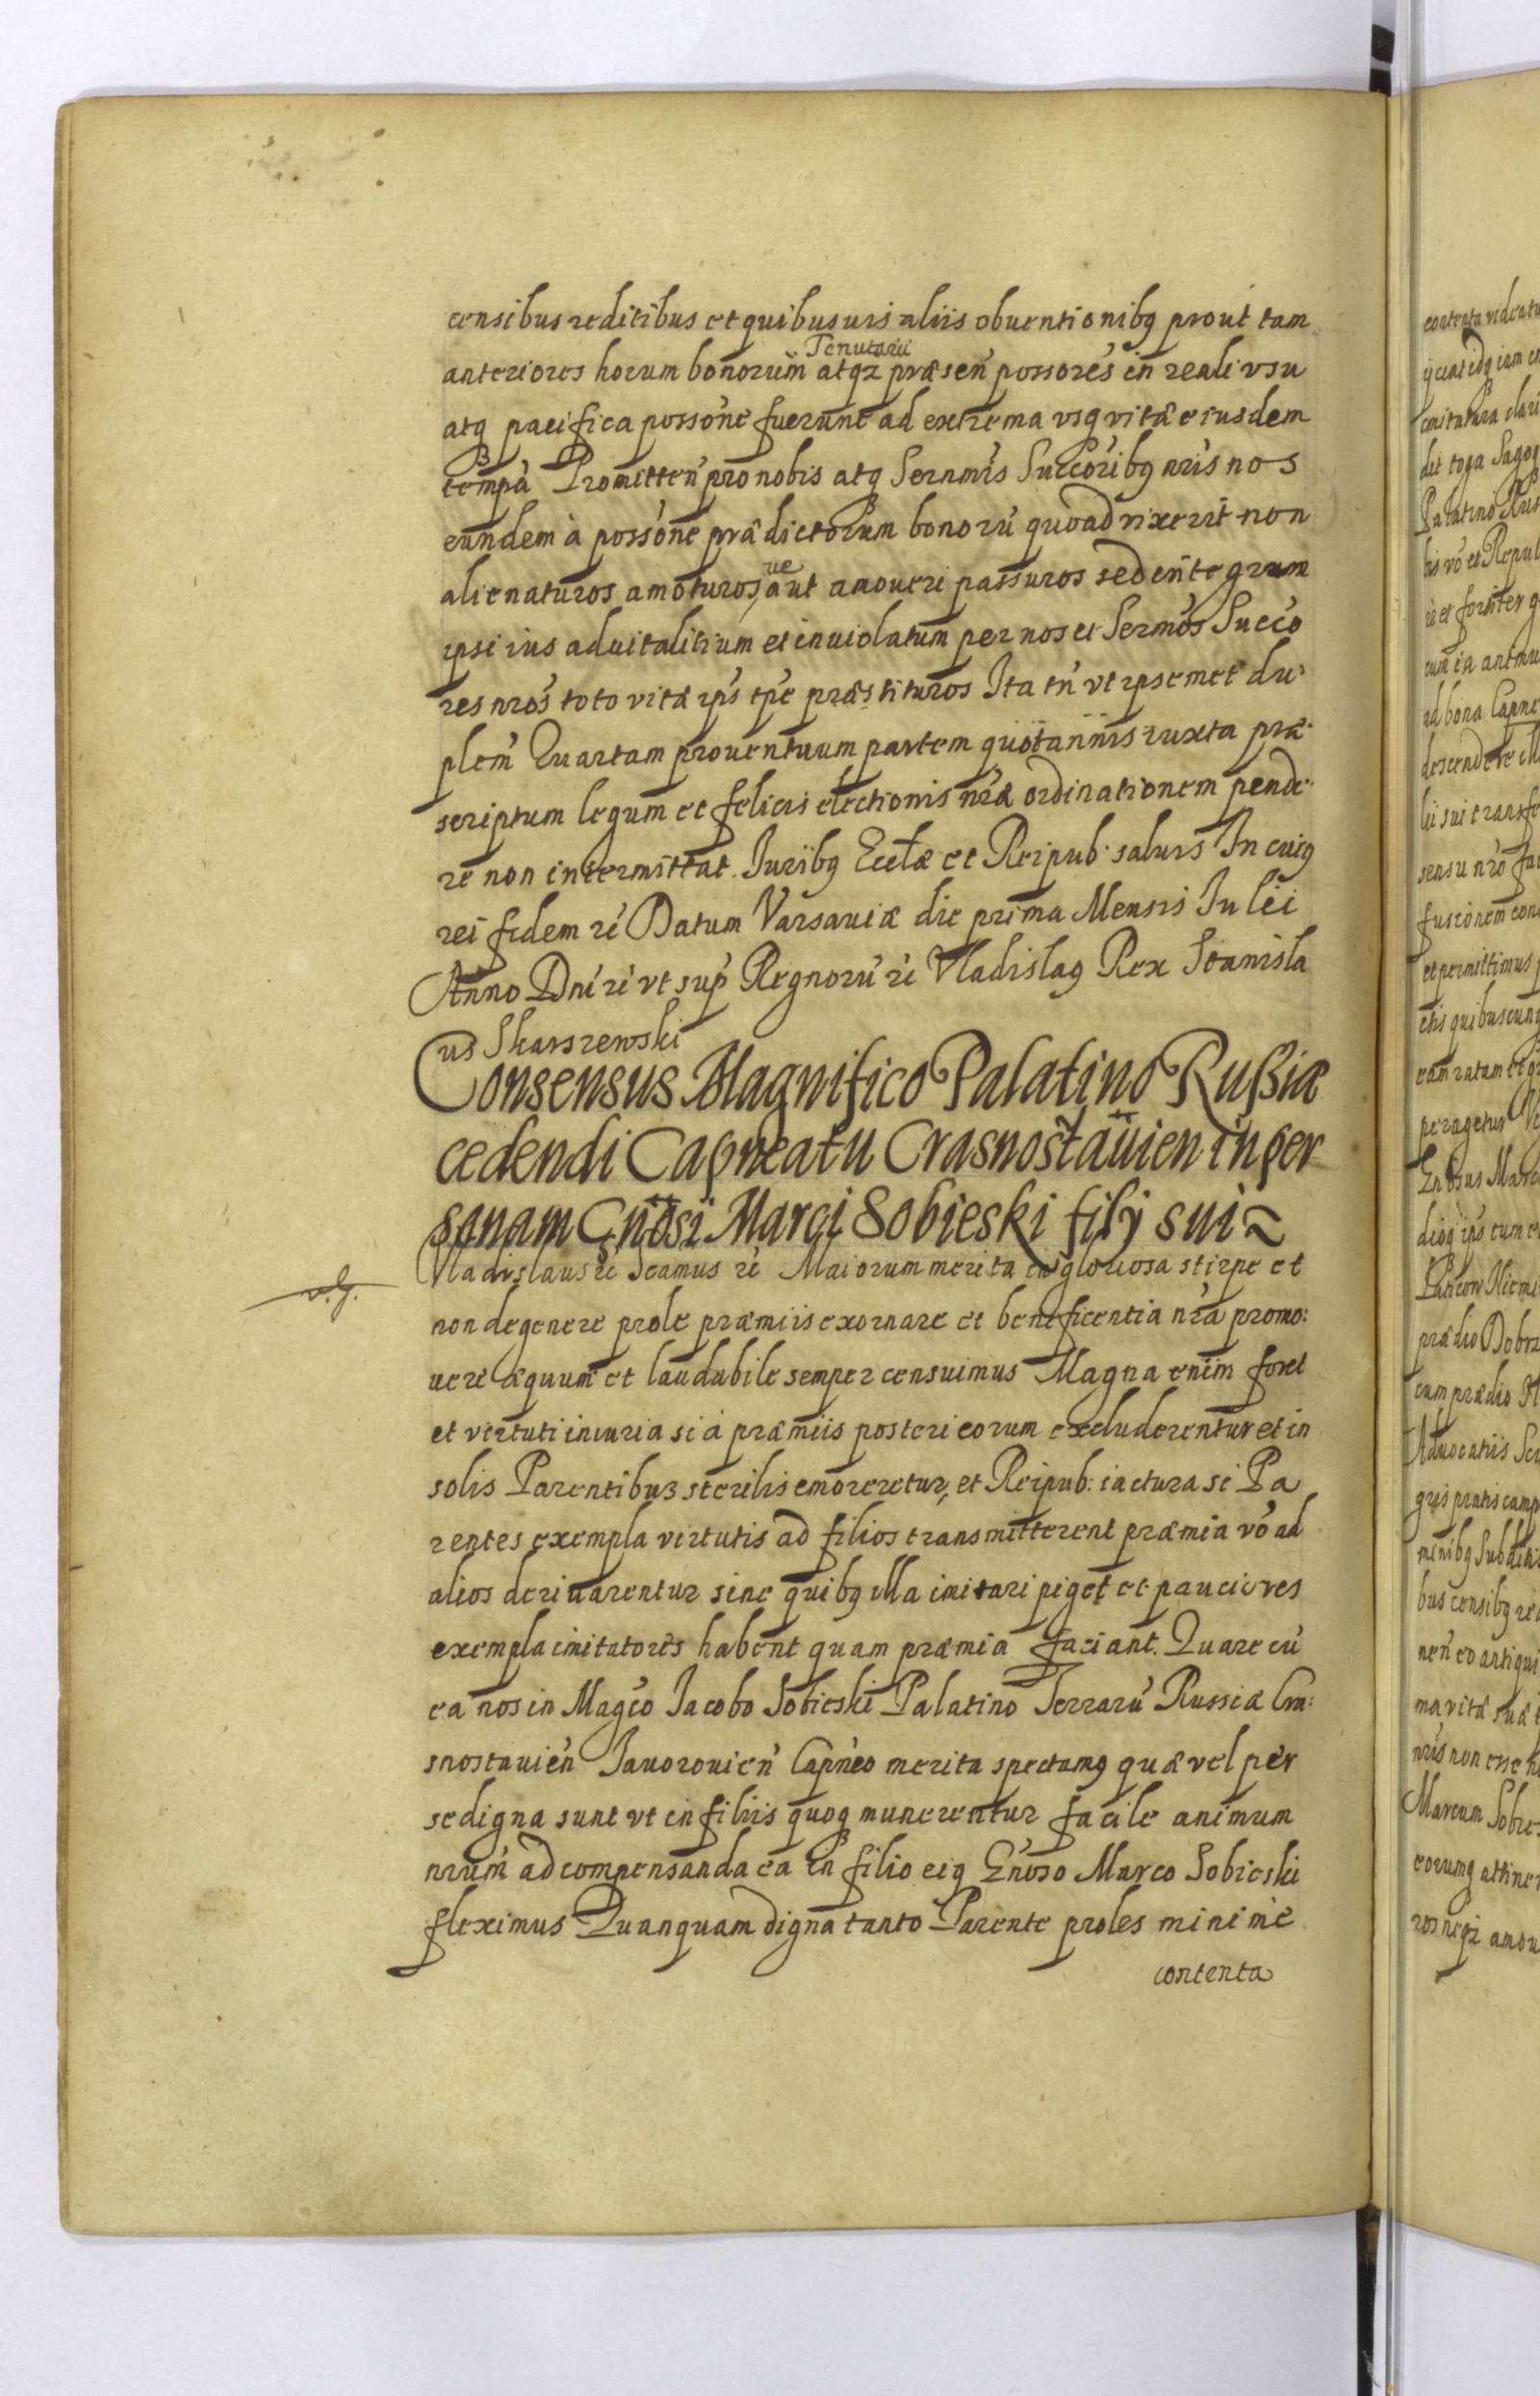 censibus reditibus et quibusuis aliis obuentionibq prout tam
Tenutarii
anteriores horum bonorum atqz præsen possores in reali vsu
atq pacifica possone fuerunt ad extrema vsq vitæ eiusdem
tempa Promitten pro nobis atq Sernmis Succoribq nris nos
eundem à possone prædictorum bonorū quoad vixerit non
ue
alienaturos amoturos, aut amoueri passuros sed integrum
ipsi ius aduitalitium et inuiolatum per nos et Sermos Succo
res nros toto vitæ ips tpe præstituros Ita tn vt ipsemet du
plem Quartam prouentuum partem quotannis iuxta præ
scriptum legum et felicis electionis nræ ordinationem pende
re non intermittat. Iuribq Eccłæ et Reipub: saluis In cuiq
rei fidem rē Datum Varsauiæ die prima Mensis Iulii
Anno Dni rē vt sup Regnorū rē Vladislaq Rex Stanisla
us Skarszewski
Consensus Magnifico Palatino Rußiæ
cedendi Capneatu Crasnostauien in per
sonam Gnosi Marci Sobieski filij sui
Vladislaus rē Scamus rē Maiorum merita in gloriosa stirpe et
v.g.
non degenere prole præmiis exornare et beneficentia nra promo:
uere æquum et laudabile semper censuimus Magna enim foret
et virtuti iniuria si à præmiis posteri eorum excluderentur et in
solis Parentibus sterilis emoreretur, et Reipub: iactura si Pa
rentes exempla virtutis ad filios transmitterent præmia vo ad
alios deriuarentur sine quibq illa imitari piget et pauciores
exempla imitatores habent quam præmia faciant. Quare cū
ea nos in Magco Iacobo Sobieski Palatino Terrarū Russiæ Cra:
snostauien Iauorouien Capneo merita spectamq quæ vel per
se digna sunt vt in filiis quoq munerentur facile animum
nrum ad compensanda ea in filio eiq Gnoso Marco Sobieski
fleximus Quanquam digna tanto Parente proles minime
contenta